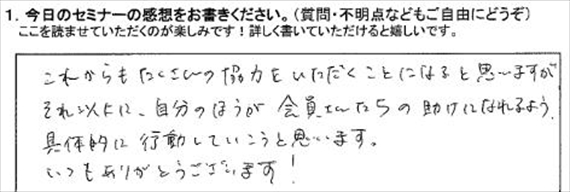 1. 今日のセミナーの感想をお書きください。(質問・不明点などもご自由にどうぞ)
ここを読ませていただくのが楽しみです！詳しく書いていただけると嬉しいです。
これからもたくさんの協力をいただくことになると思いますが
それ以上に、自分のほうが会員さんたちの助けになれるよう、
具体的に行動していこうと思います。
いつもありがとうございます！